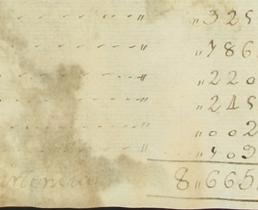 - - - - - - - " "325
- - - - - - - " "786
- - - - - - - " "220
- - - - - - - " "245
- - - - - - - " "002
- - - - - - - " "709
8"665